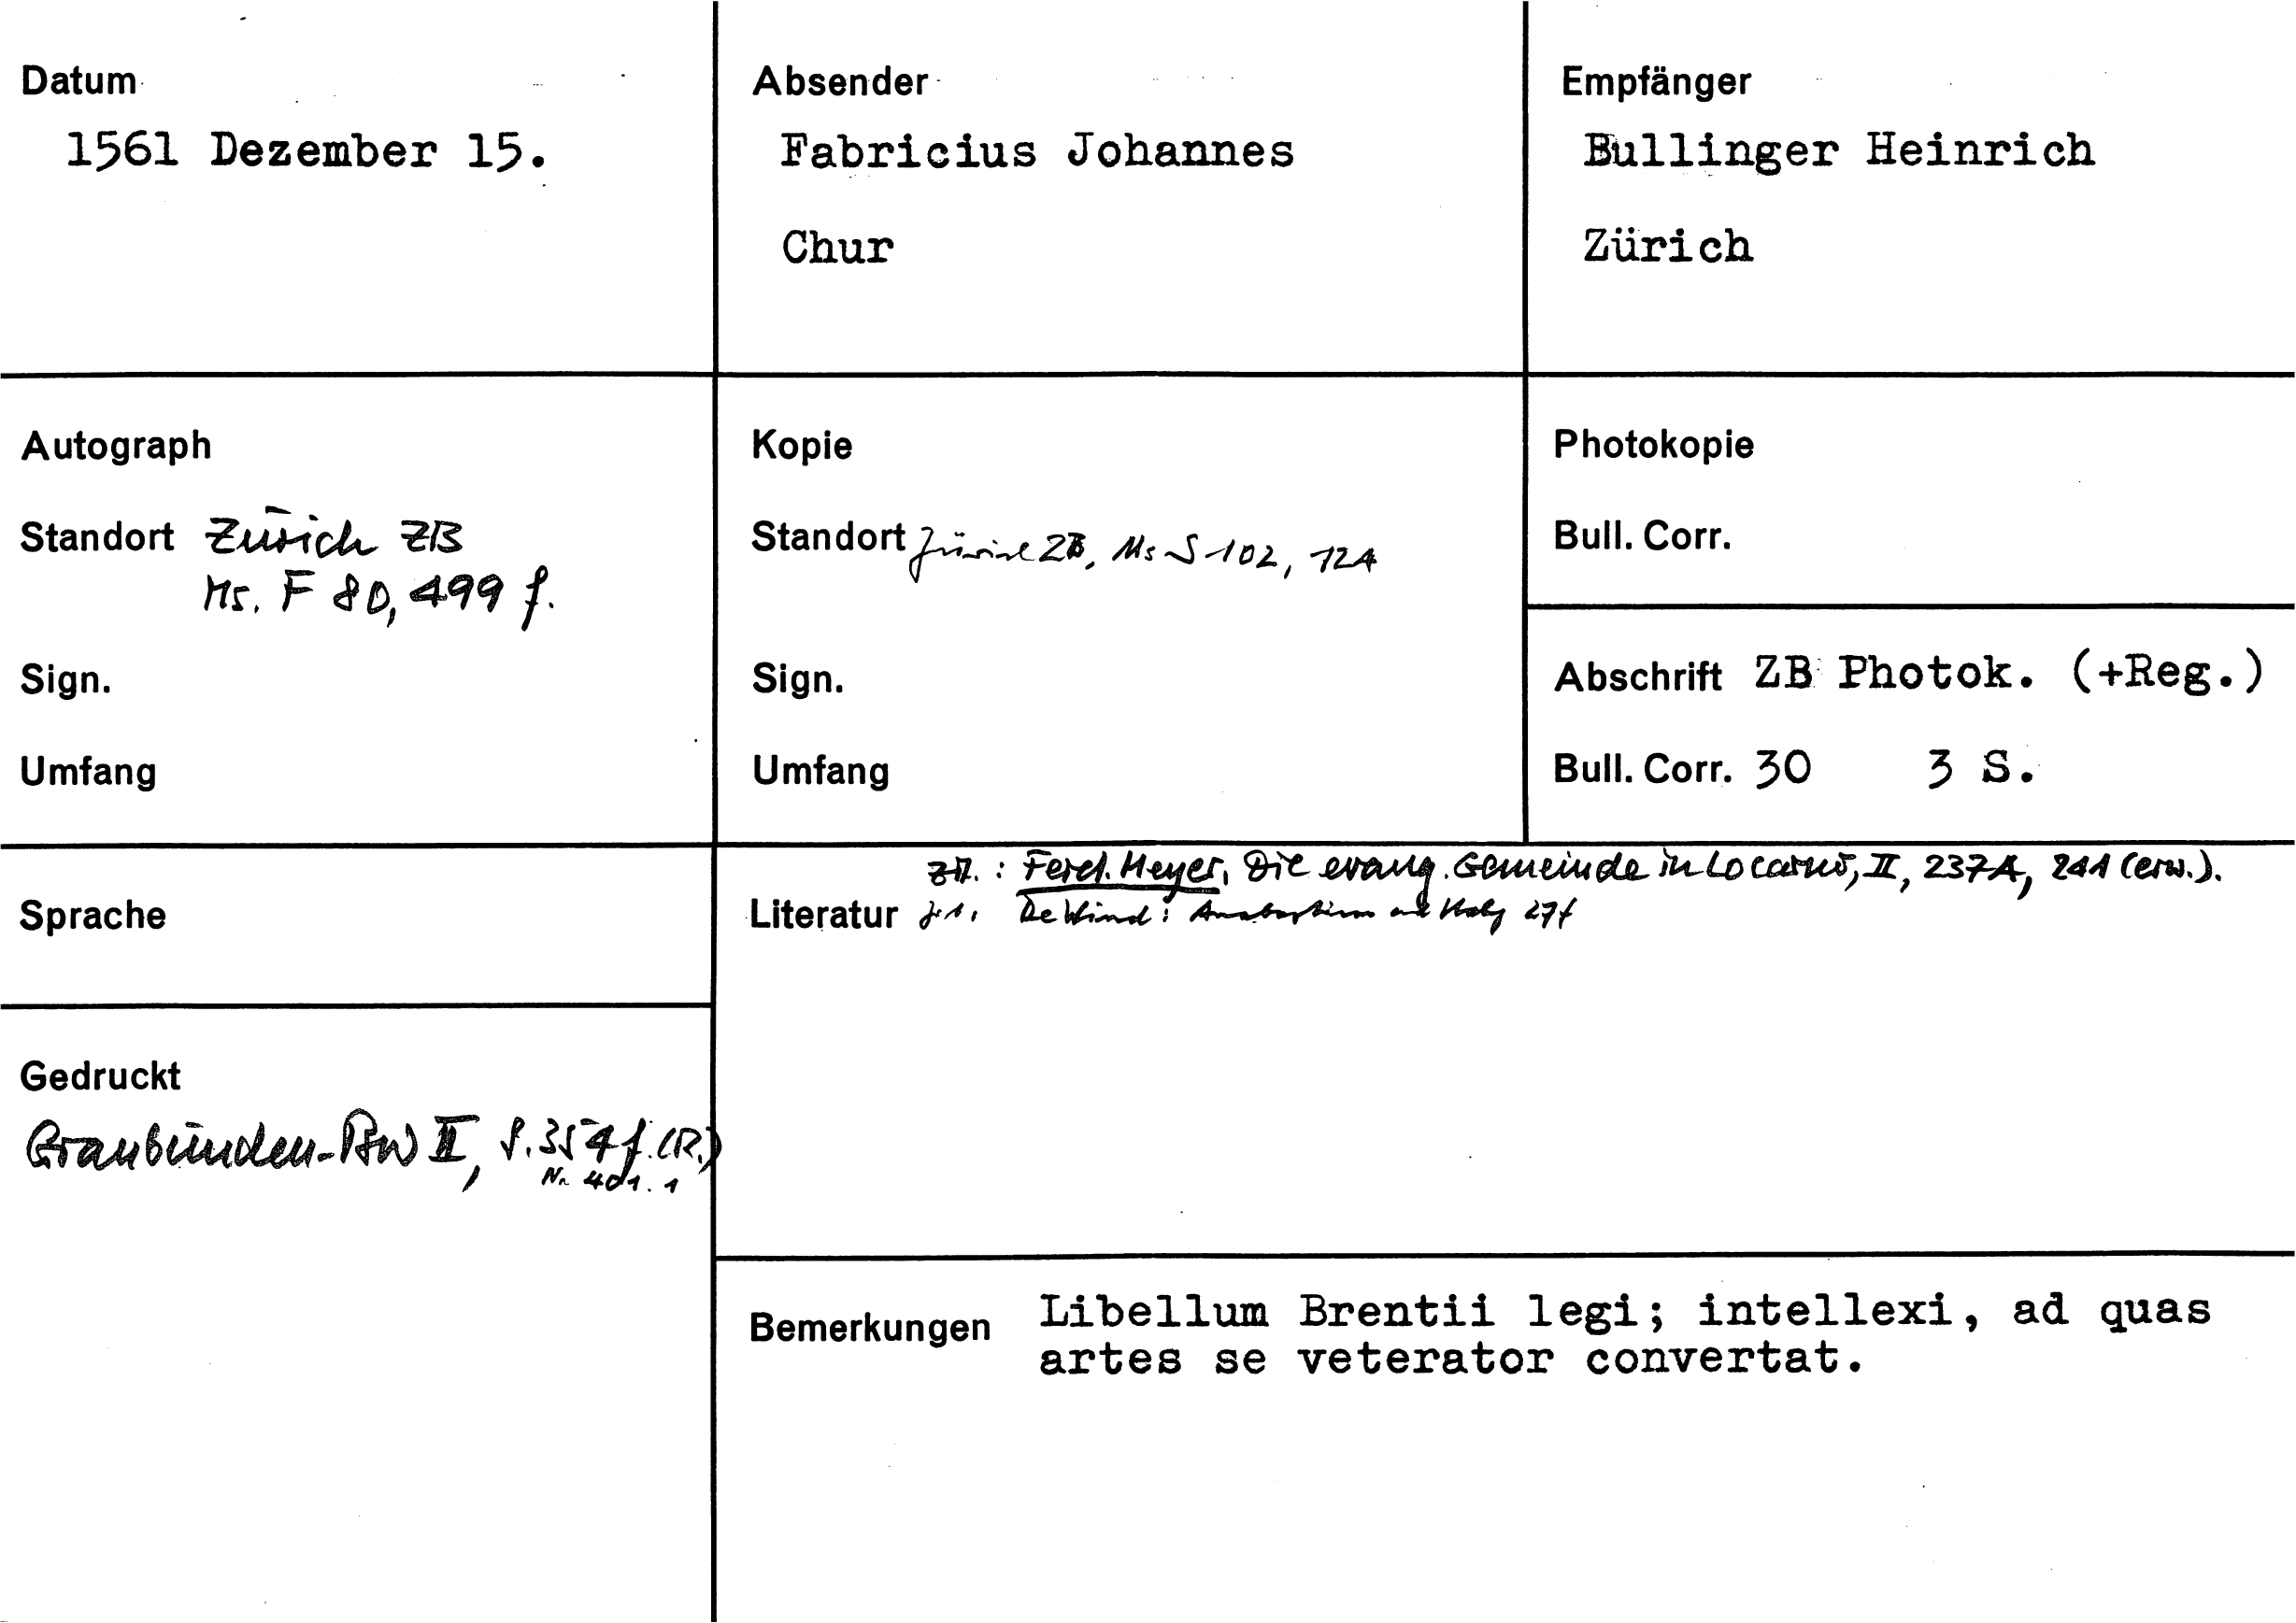 Datum
1561 Dezember 15.
Absender
Fabricius Johannes
Chur
Empfänger
Bullinger Heinrich
Zürich
Autograph
Standort Zürich ZB
Ms. F 80, 499 f.
Sign.
Umfang
Kopie
Standort Zürich ZB, Ms S 102, 124
Sign.
Umfang
Photokopie
Bull. Corr.
Abschrift ZB Photok. (+Reg.)
Bull. Corr. 30 3 S.
Sprache
Gedruckt
Graubünden-BW II, S. 354 f. (R.)
Nr. 401.1
zit.: Ferd. Meyer, Die evang. Gemeinde in Locarno, II, 237A, 241 (erw.).
Literatur zit. De Wind: 27f
Bemerkungen Libellum Brentii legi; intellexi, ad quas
artes se veterator convertat.